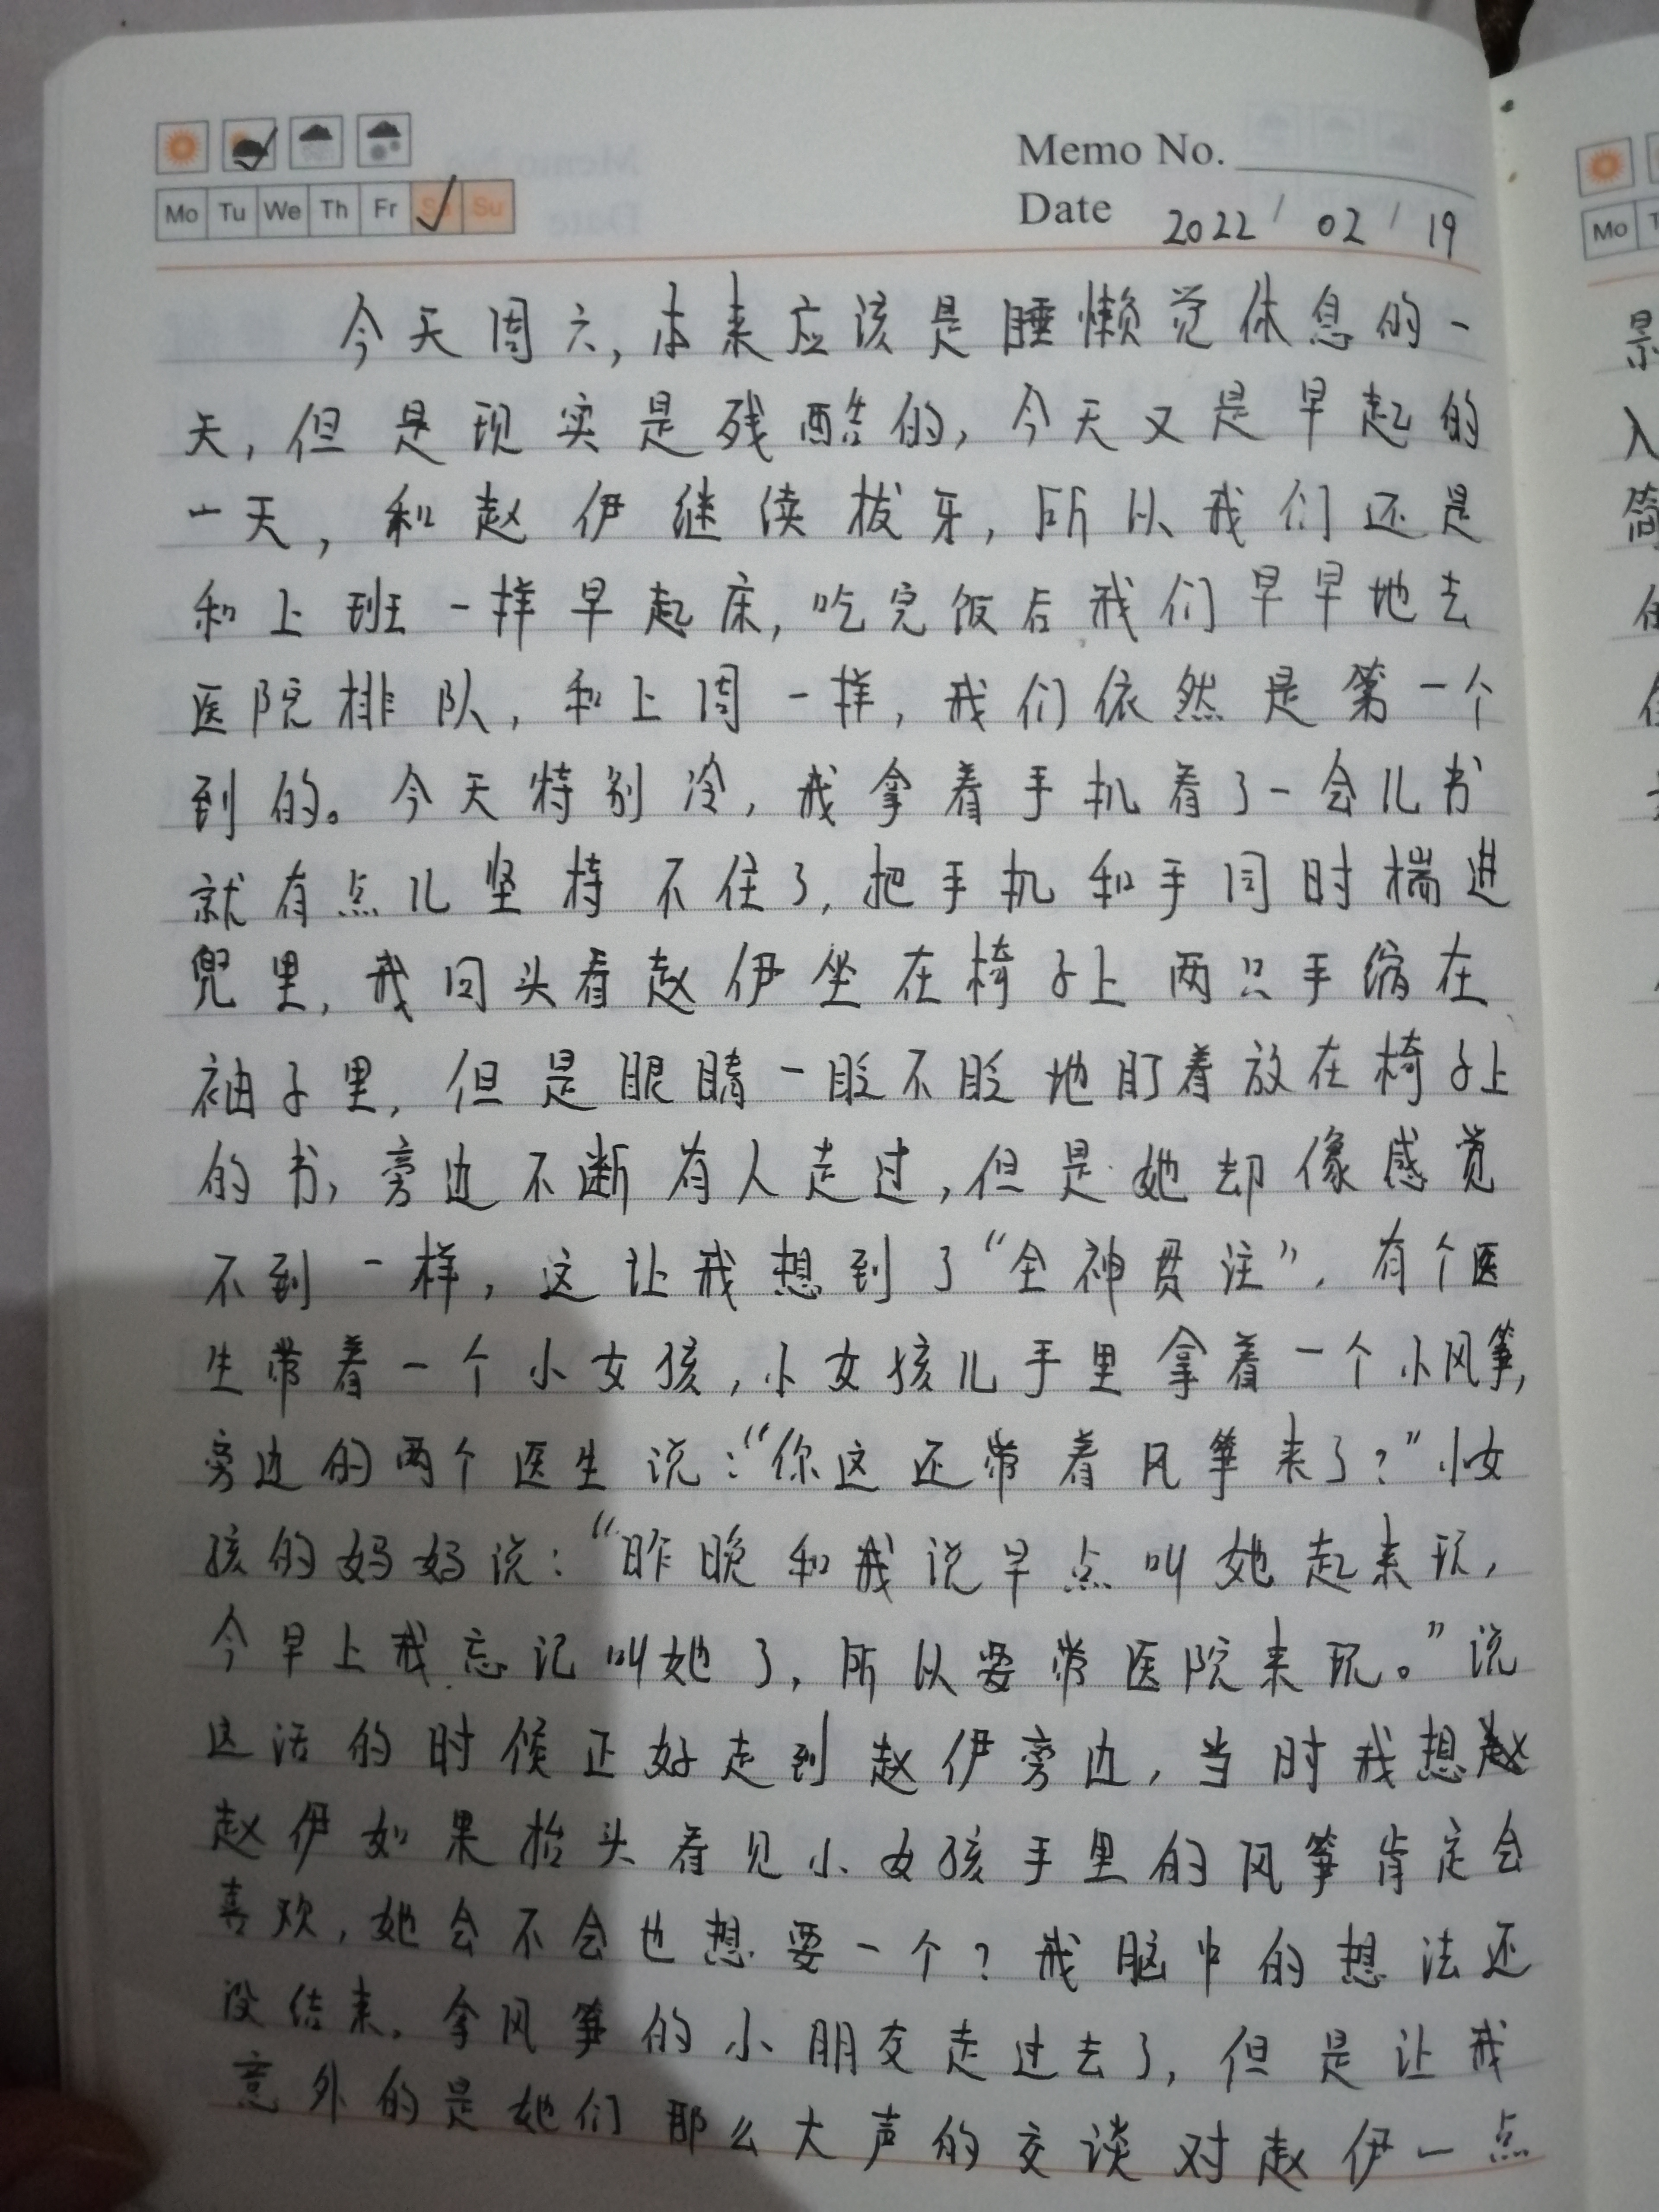 Memo No.
Mo Tu We Th Fr Su
Date 2022 / 02 / 19
今天周六，本来应该是睡懒觉休息的一
天，但是现实是残酷的，今天又是早起的
一天，和赵伊继续拔牙，所以我们还是
和上班一样早起床，吃完饭后我们早早地去
医院排队，和上周一样，我们依然是第一个
到的。今天特别冷，我拿着手机看了一会儿书
就有点儿坚持不住了，把手机和手同时揣进
兜里，我回头看赵伊坐在椅子上两只手缩在
袖子里，但是眼睛一眨不眨地盯着放在椅子上
的书，旁边不断有人走过，但是她却像感觉
不到一样，这让我想到了“全神贯注”，有个医
生带着一个小女孩，小女孩儿手里拿着一个小风筝，
旁边的两个医生说：“你这还带着风筝来了？”小女
孩的妈妈说：“昨晚和我说早点叫她起来玩，
今早上我忘记叫她了，所以要带医院来玩。”说
这话的时候正好走到赵伊旁边，当时我想赵
赵伊如果抬头看见小女孩手里的风筝肯定会
喜欢，她会不会也想要一个？我脑中的想法还
没结束，拿风筝的小朋友走过去了，但是让我
意外的是她们那么大声的交谈对赵伊一点
Mo
景
入
简